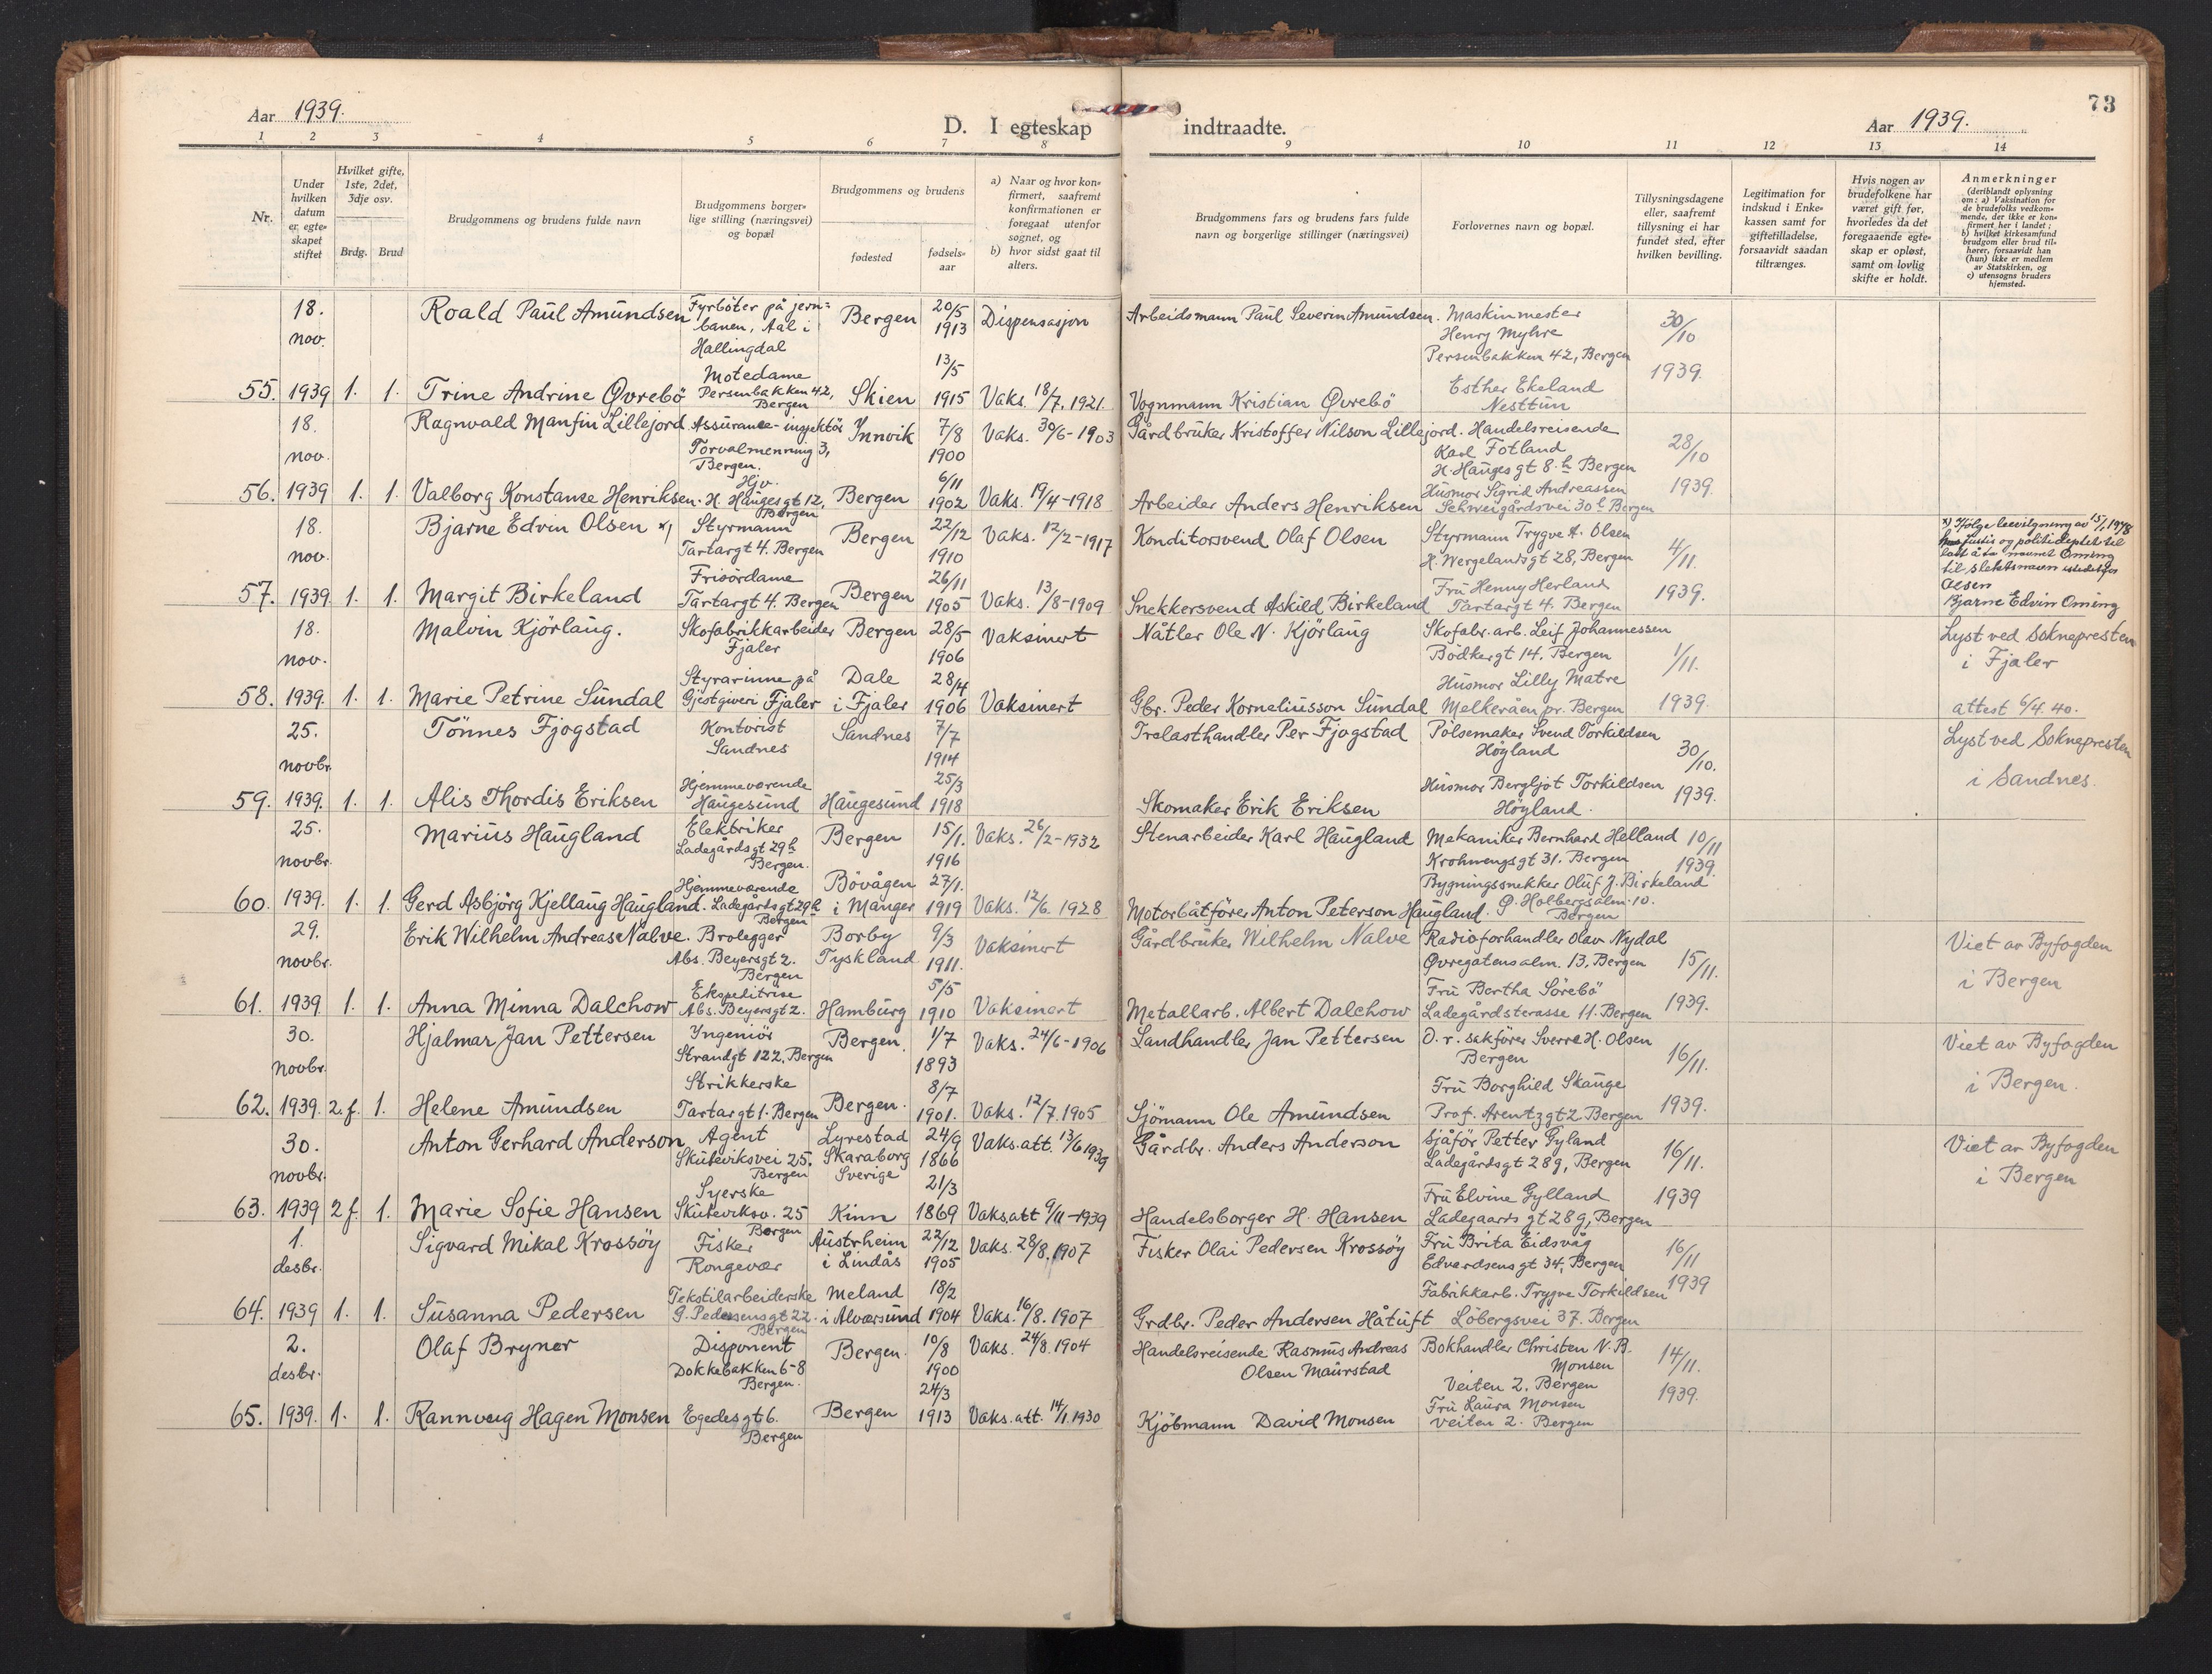 73
Aar 1939.
D. I egteskap indtraadte.
Aar 1939.
1 2 3 4 5 6 7 8 9 10 11 12 13 14
Nr.
Under hvilken datum er egteskapet stiftet
Hvilket gifte, 1ste, 2det, 3dje osv.
Brdg. Brud
Brudgommens og brudens fulde navn
Brudgommens borgerlige stilling (næringsvei) og bopæl
Brudgommens og brudens
fødested
fødselsaar
a) Naar og hvor konfirmert, saafremt konfirmationen er foregaat utenfor sognet, og
b) hvor sidst gaat til alters.
Brudgommens fars og brudens fars fulde navn og borgerlige stillinger (næringsvei)
Forlovernes navn og bopæl.
Tillysningsdagene eller, saafremt tillysning ei har fundet sted, efter hvilken bevilling.
Legitimation for indskud i Enkekassen samt for giftetilladelse, forsaavidt saadan tiltrænges.
Hvis nogen av brudefolkene har været gift før, hvorledes da det foregaaende egteskap er opløst, samt om lovlig skifte er holdt.
Anmerkninger
(deriblandt oplysning om: a) Vaksination for de brudefolks vedkommende, der ikke er konfirmert her i landet; b) hvilket kirkesamfund brudgom eller brud tilhører, forsaavidt han (hun) ikke er medlem av Statskirken, og c) utensogns bruders hjemsted.
55. 18. nov. 1939 1. 1.
Roald Paul Amundsen
Fyrböter på jernbanen, Aal i Hallingdal
Bergen 20/5 1913 Dispensasjon
Arbeidsmann Paul Severin Amundsen.
Maskinmester Henry Myhre Persenbakken 42, Bergen
30/10 1939.
Trine Andrine Øvrebö
Motedame Persenbakken 42, Bergen
Skien 13/5 1915 Vaks. 18/7. 1921.
Vognmann Kristian Øvrebö
Esther Ekeland Nesttun
56. 18. nov. 1939 1. 1.
Ragnvald Manfin Lillejord
Assurance-inspektör Torvalmenning 3, Bergen.
Innvik 7/8 1900 Vaks. 30/6-1903
Gårdbruker Kristoffer Nilson Lillejord.
Handelsreisende Karl Fotland H. Hauges gt 8 h Bergen
28/10 1939.
Valborg Konstanse Henriksen.
Hjv. H. Hauges gt 12, Bergen
Bergen 6/11 1902 Vaks. 19/4-1918
Arbeider Anders Henriksen
Husmor Sigrid Andreassen Schweigårdsvei 30 Bergen
57. 18. nov. 1939. 1. 1.
Bjarne Edvin Olsen x)
Styrmann Tartargt 4. Bergen
Bergen 22/12 1910 Vaks. 12/2-1917
Konditorsvend Olaf Olsen
Styrmann Trygve A. Olsen H. Wergelandsgt 28, Bergen
4/11. 1939.
x) Ifölge bevilgning av 15/1 1948
Justis og politideptet til
latt å ta navnet Oming
til slektsnavn istedetfor
Olsen
Bjarne Edvin Oming
Margit Birkeland
Frisördame Tartargt 4. Bergen
Bergen 26/11 1905 Vaks. 13/8-1909
Snekkersvend Askild Birkeland
Fru Henny Herland Tartargt 4. Bergen
58. 18. nov. 1939. 1. 1.
Malvin Kjörlaug.
Skofabrikkarbeider Fjaler
Bergen 28/5 1906 Vaksinert
Nåtler Ole N. Kjörlaug
Skofabr. arb. Leif Johannessen Bödkergt 14. Bergen
1/11. 1939.
Lyst ved Soknepresten i Fjaler
attest 6/4 40.
Marie Petrine Sundal
Styrarinne på Gjestgiveri Fjaler
Dale i Fjaler 28/4 1906 Vaksinert
Gbr. Peder Korneliusson Sundal
Husmor Lilly Matre Melkeråen pr. Bergen
59. 25. novbr. 1939. 1. 1.
Tönnes Fjogstad
Kontorist Sandnes
Sandnes 7/7 1914
Trelasthandler Per Fjogstad
Pölsemaker Svend Torkildsen Höyland
30/10. 1939.
Lyst ved Soknepresten i Sandnes.
Alis Thordis Eriksen
Hjemmeværende Haugesund
Haugesund 25/3 1918
Skomaker Erik Eriksen
Husmor Bergljot Torkildsen Höyland.
60. 25. novbr. 1939. 1. 1.
Marius Haugland
Elektriker Ladegårdsgt 29 h Bergen.
Bergen 15/1. 1916 Vaks. 26/2-1932
Stenarbeider Karl Haugland
Mekaniker Bernhard Helland Krohnengsgt 31. Bergen
10/11 1939.
Gerd Asbjörg Kjellaug Haugland.
Hjemmeværende Ladegårdsgt 29 h Bergen
Bövågen i Manger 27/1. 1919 Vaks. 12/6. 1928
Motorbåtförer Anton Peterson Haugland.
Bygningssnekker Oluf J. Birkeland Holbergsalm. 10. Bergen
61. 29. novbr. 1939 1. 1.
Erik Wilhelm Andreas Nalve.
Brolegger Abs. Beyersgt 2. Bergen
Borby Tyskland 9/3 1911. Vaksinert
Gårdbruker Wilhelm Nalve
Radioforhandler Olav Nydal Øvregatensalm. 13, Bergen
15/11. 1939.
Viet av Byfogden i Bergen
Anna Minna Dalchow
Ekspeditrise Abs. Beyersgt 2.
Hamburg 5/5 1910 Vaksinert
Metallarb. Albert Dalchow
Fru Bertha Sörebö Ladegårdsterasse 11. Bergen
62. 30. novbr. 1939. 2. f. 1.
Hjalmar Jan Pettersen
Yngeniör Strandgt 122, Bergen
Bergen. 1/7 1893 Vaks. 24/6-1906
Landhandler Jan Pettersen
O. r. sakförer Sverre H. Olsen Bergen
16/11. 1939.
Viet av Byfogden i Bergen.
Helene Amundsen
Strikkerske Tartargt 1. Bergen
Bergen. 8/7 1901. Vaks. 12/7. 1905
Sjömann Ole Amundsen
Fru Borghild Skauge Prof. Arentzgt 2. Bergen
63. 30. novbr. 1939 2 f. 1.
Anton Gerhard Anderson
Agent Skuteviksvei 25. Bergen
Lyrestad Skaraborg Sverige 24/9 1866 Vaks. att. 13/6 1939
Gårdbr. Anders Anderson
Sjåför Petter Gyland Ladegårdsgt 28 g, Bergen
16/11. 1939
Viet av Byfogden i Bergen
Marie Sofie Hansen
Syerske Skuteviksv. 25 Bergen
Kinn 21/3 1869 Vaks att 9/11-1939
Handelsborger H. Hansen
Fru Elvine Gylland Ladegaards gt 28 g, Bergen
64. 1. desbr. 1939 1. 1.
Sigvard Mikal Krossöy
Fisker Rongevær
Austrheim i Lindås 22/12 1905 Vaks. 28/8. 1907
Fisker Olai Pedersen Krossöy
Fru Brita Eidsvåg Edvardsens gt 34, Bergen
16/11 1939
Susanna Pedersen
Tekstilarbeiderske G. Pedersensgt 22. Bergen
Meland i Alversund 18/2 1904 Vaks. 16/8. 1907
Grdbr. Peder Andersen Håtuft
Fabrikkarb. Trygve Torkildsen Löbergsvei 37. Bergen
65. 2. desbr. 1939. 1. 1.
Olaf Bryner
Disponent Dokkebakken 6-8 Bergen.
Bergen. 10/8 1900 Vaks. 24/8. 1904
Handelsreisende Rasmus Andreas Olsen Maurstad
Bokhandler Christen N. R. Monsen Veiten 2. Bergen
14/11. 1939.
Rannveig Hagen Monsen
Egedesgt 6. Bergen
Bergen 24/3 1913 Vaks. att. 14/1. 1930
Kjöbmann David Monsen
Fru Laura Monsen Veiten 2. Bergen